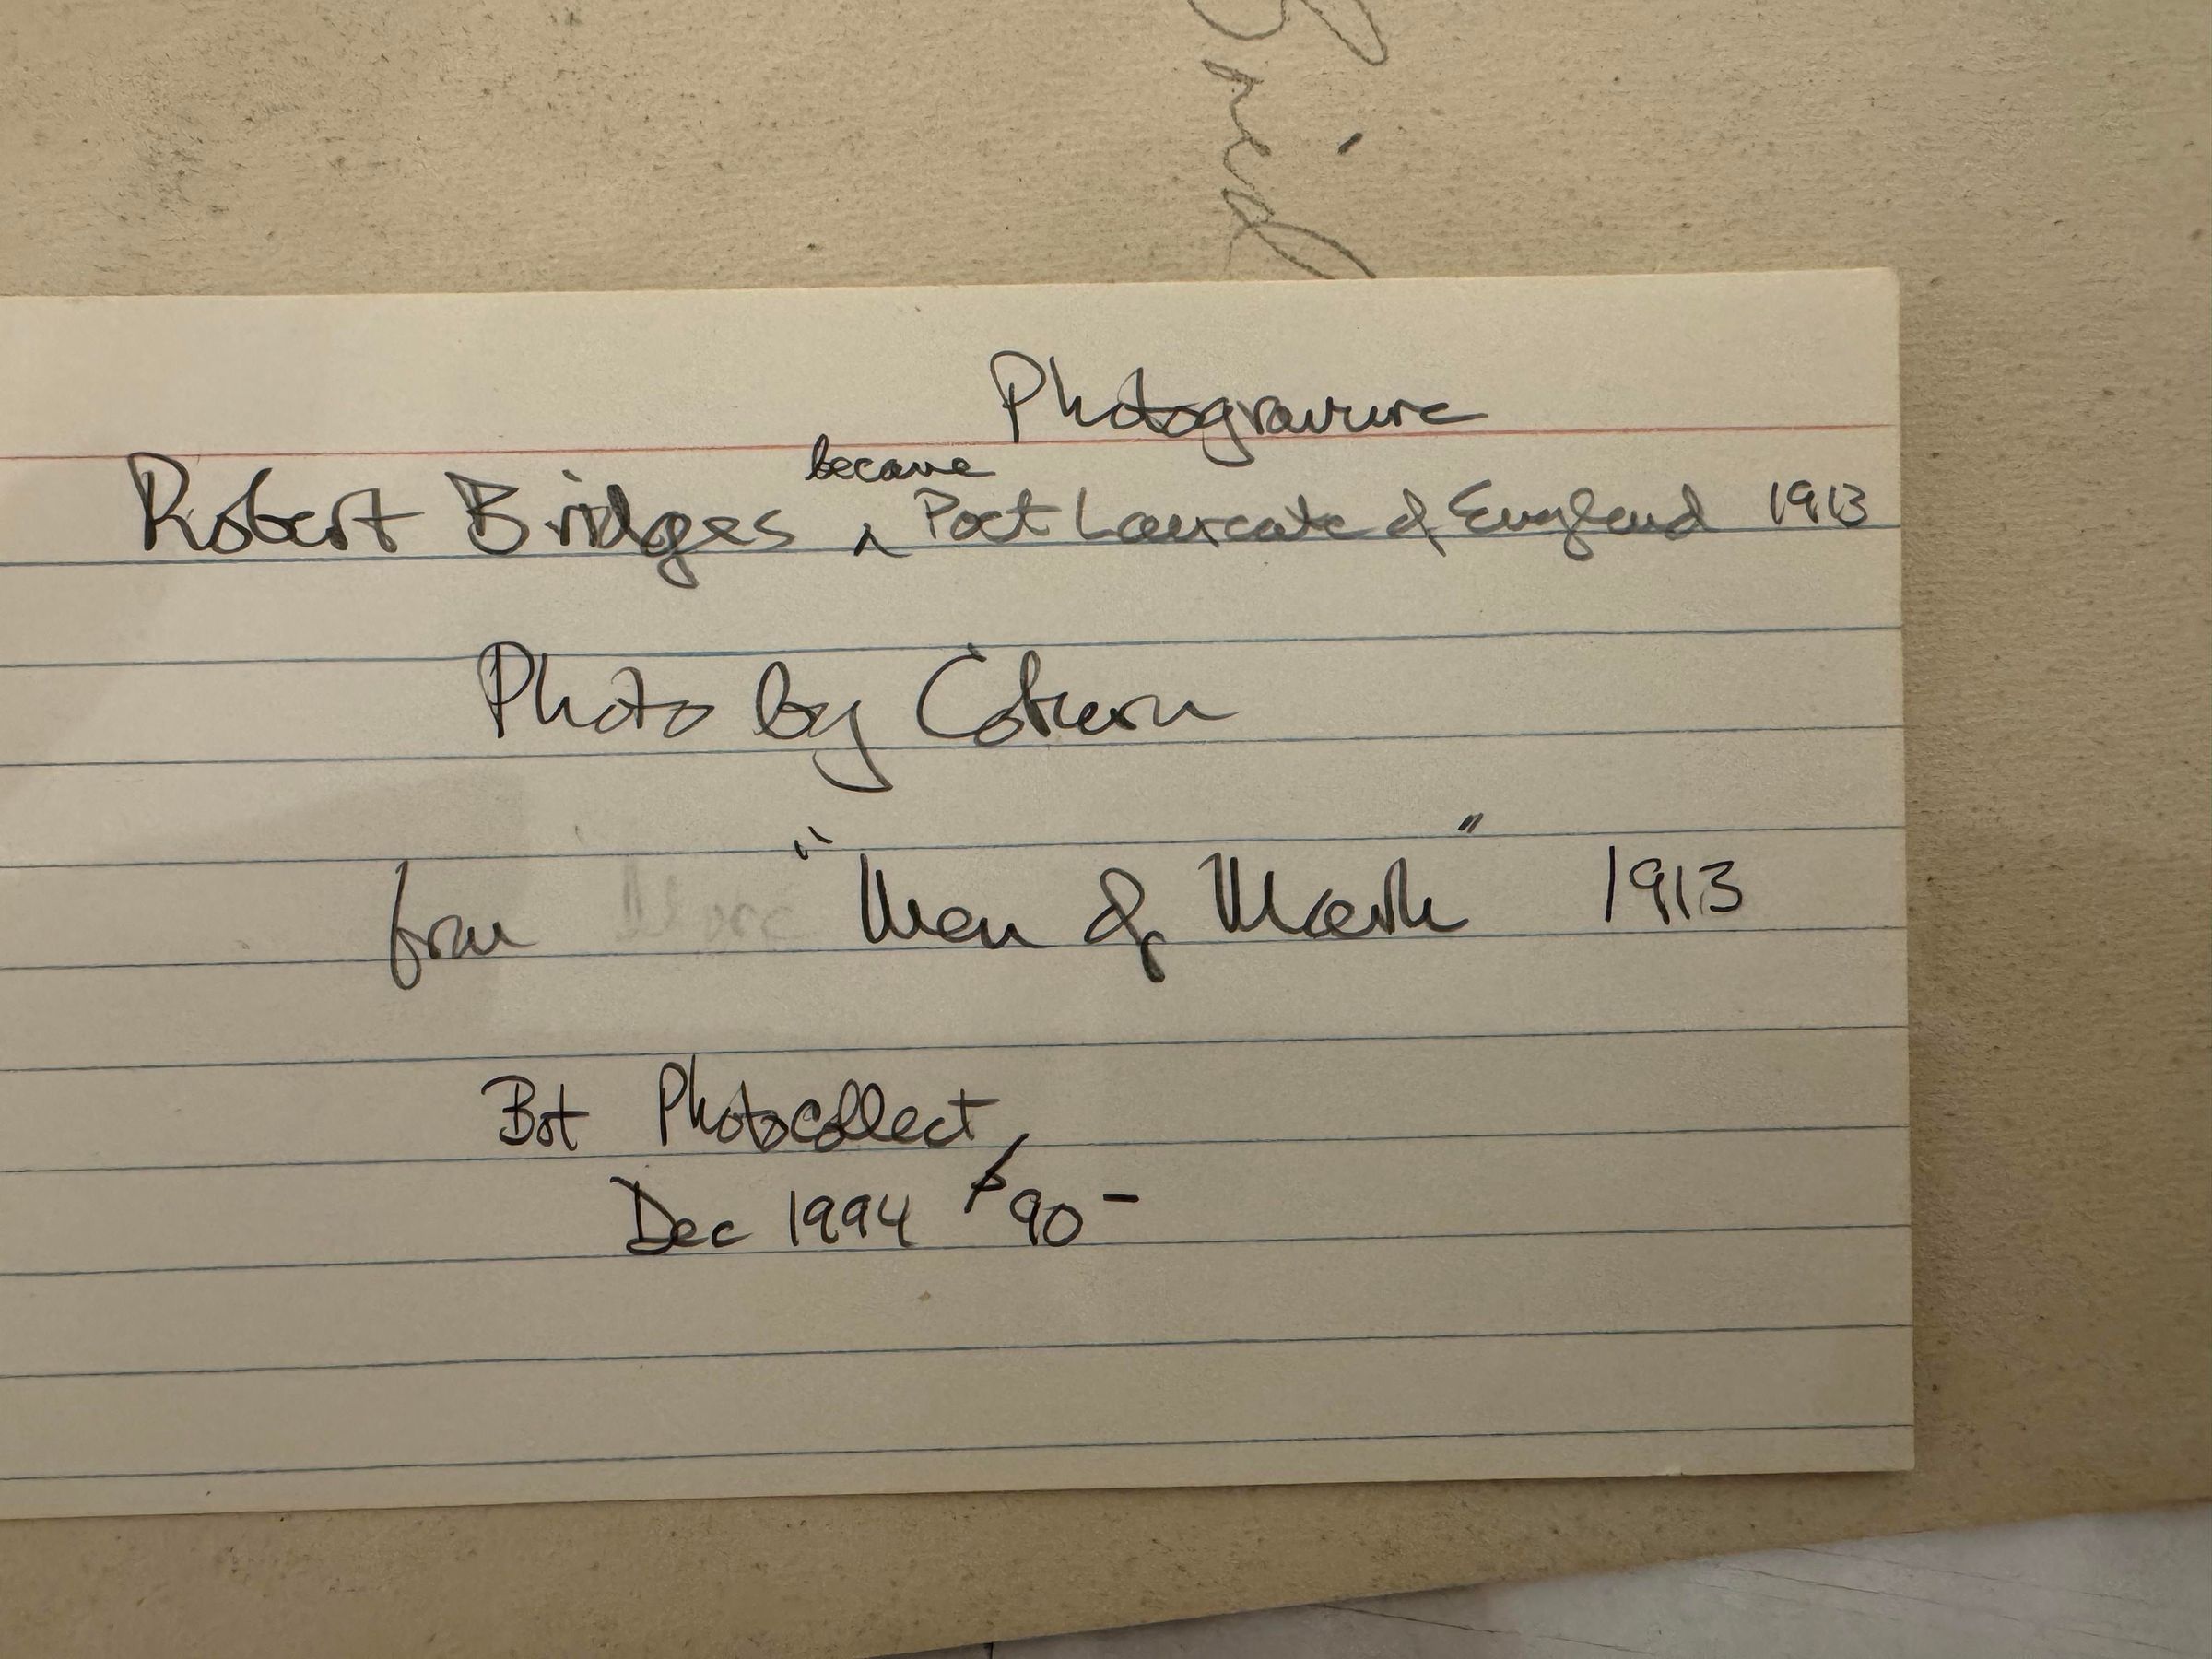 Photogravure
became
Robert Bridges ^ Poet Laureate of England 1913
Photo by Coburn
from "Men of Mark" 1913
Bot Photocollect
Dec 1994 $90-